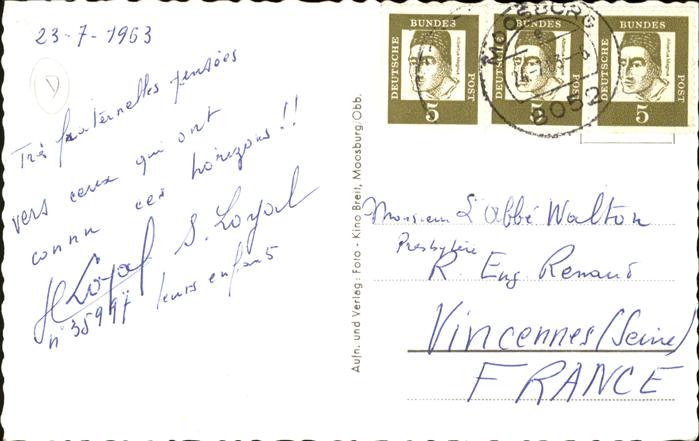 23-7-1963
Très fraternelles pensées
vers ceux qui ont
connu ces horizons!!
H Loyal S. Loyal
n° 35997 leurs enfants
D
Aufn. und Verlag: Foto - Kino Breit, Moosburg/Obb.
DEUTSCHE BUNDES POST
Albertus Magnus
5
DEUTSCHE BUNDES POST
Albertus Magnus
5
DEUTSCHE BUNDES POST
Albertus Magnus
5
MOOSBURG
8052
Monsieur L'Abbé Walton
Presbytère
R. Eug. Renaud
Vincennes (Seine)
FRANCE